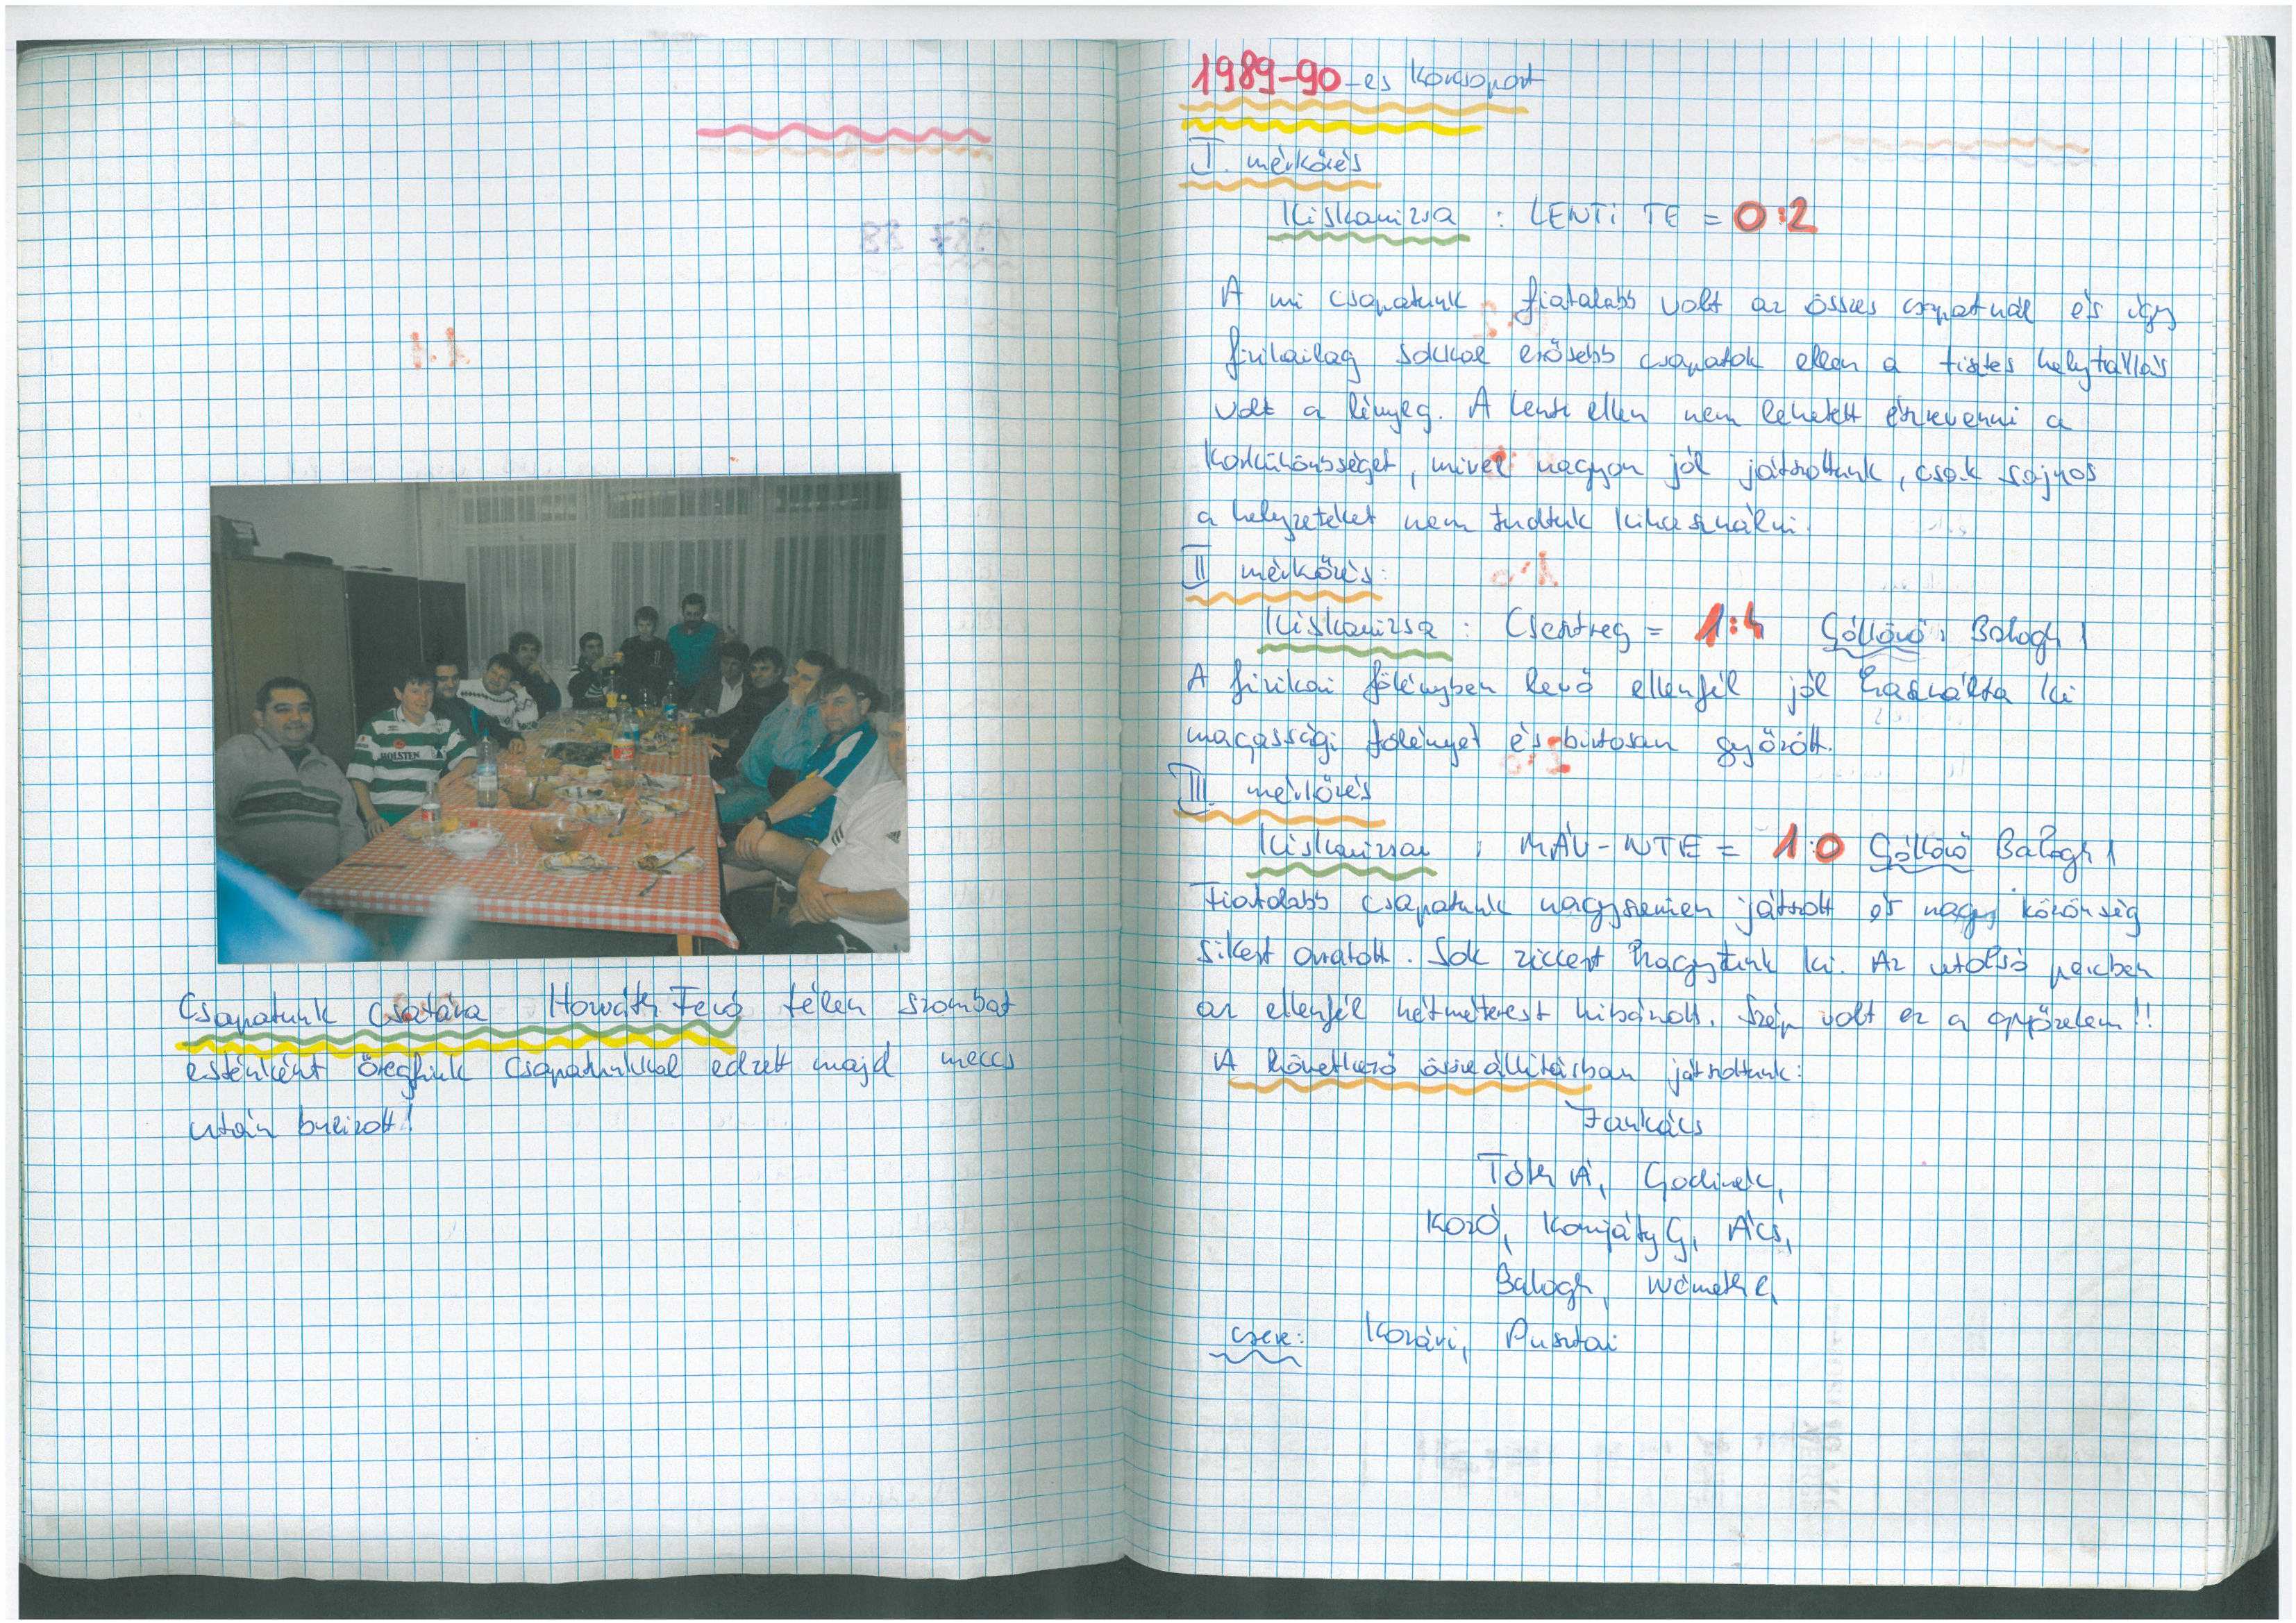 HOLSTEN
Csapatunk csatára Horváth Feró télen szombat
esténként öregfiúk csapatunkkal edzett majd meccs
után bulizott!
1989-90-es korcsoport
I. mérkőzés
Kiskanizsa : LENTI TE = 0:2
A mi csapatunk fiatalabb volt az összes csapatnál és így
fizikailag sokkal erősebb csapatok ellen a tisztes helytállás
volt a lényeg. A Lenti ellen nem lehetett észrevenni a
korkülönbséget, mivel nagyon jól játszottunk, csak sajnos
a helyzeteket nem tudtuk kihasználni.
II mérkőzés:
Kiskanizsa : Csesztreg = 1:4 Góllövő: Balogh 1
A fizikai fölényben levő ellenfél jól használta ki
magassági fölényét és biztosan győzött.
III. mérkőzés
Kiskanizsa : MÁV-NTE = 1:0 Góllövő Balogh 1
Fiatalabb csapatunk nagyszerűen játszott és nagy közönség
sikert aratott. Sok ziccert hagytunk ki. Az utolsó percben
az ellenfél hétméterest hibázott. Szép volt ez a győzelem!!
A következő összeállításban játszottunk:
Farkács
Tóth Á, Godinek,
Kozó, Komjáty G, Ács,
Balogh, Németh
csere: Kozári, Pusztai